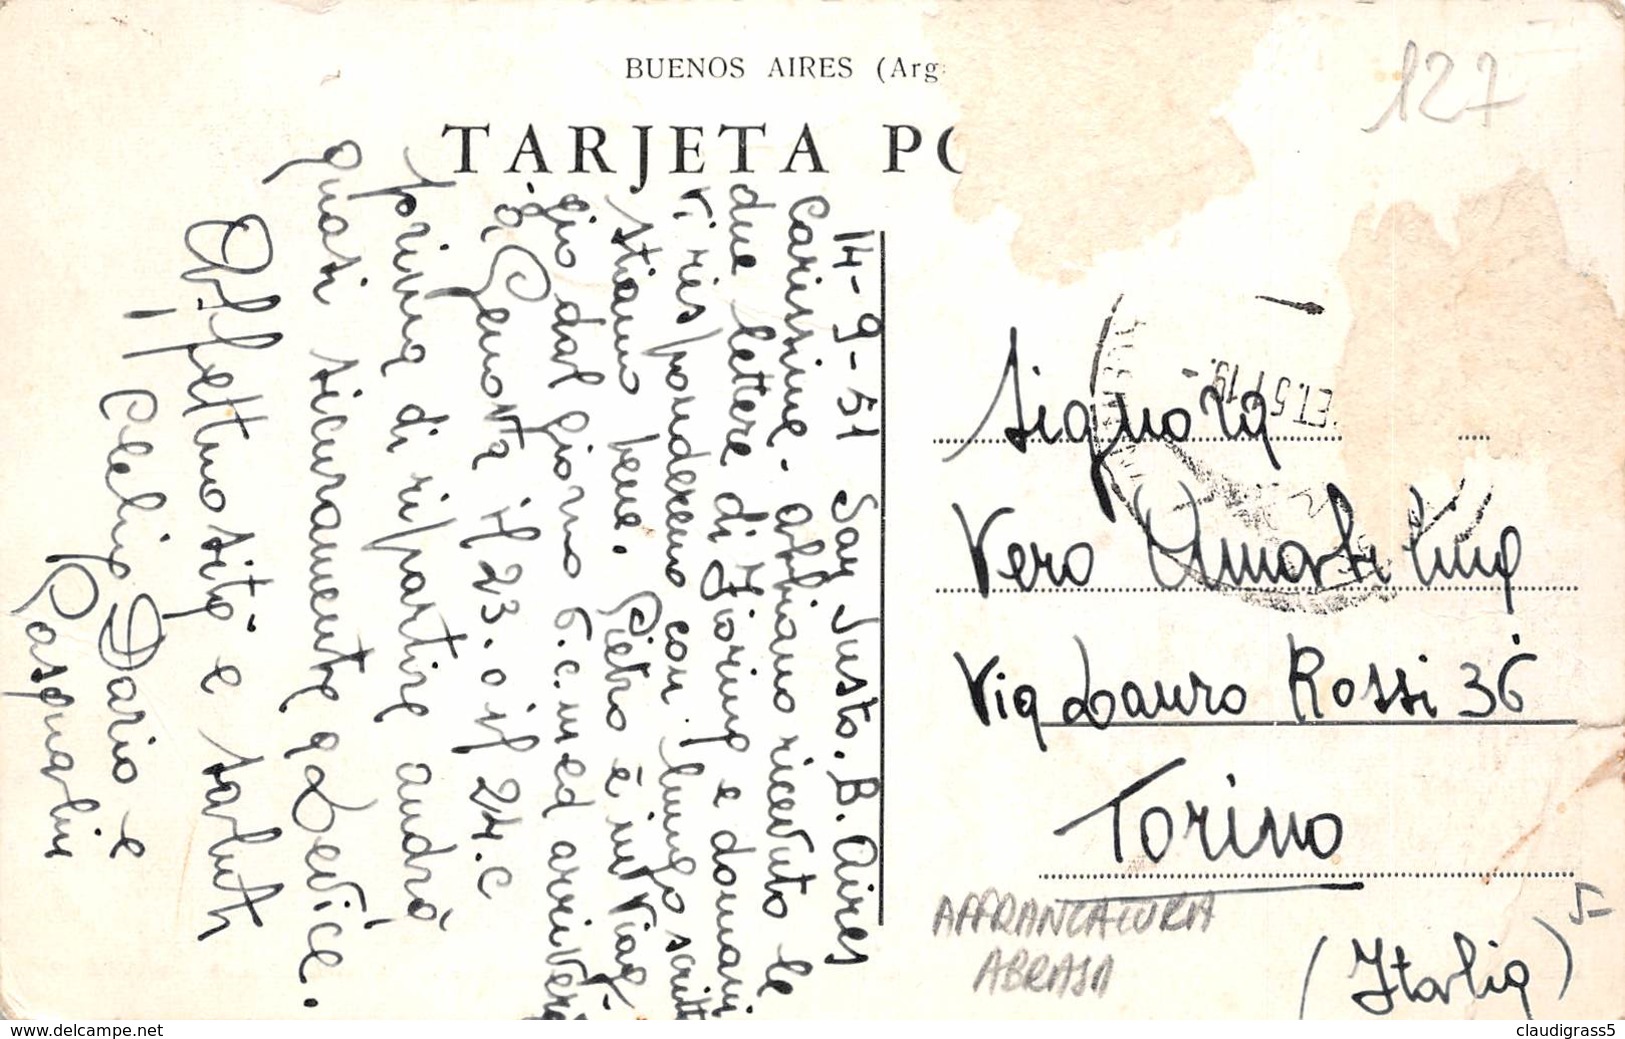 BUENOS AIRES (Arg
TARJETA PO
127
14-9-51 San Justo. B. Aires
Carissime. abbiamo ricevuto le
due lettere di Fiorina e domani
vi risponderemo con lungo scritto
stiamo bene. Pietro è in viag-
gio dal giorno 6.c.m ed arriverà
a Genova il 23. o il 24. c
prima di ripartire andrà
quasi sicuramente a Levice.
Affettuosità e saluti
Clelia Dario e
Pasqualin
Signora
Vero Amalia
Via Lauro Rossi 36
Torino
(Italia)
AFFRANCATURA
ABRASA
5-
www.delcampe.net
claudigrass5